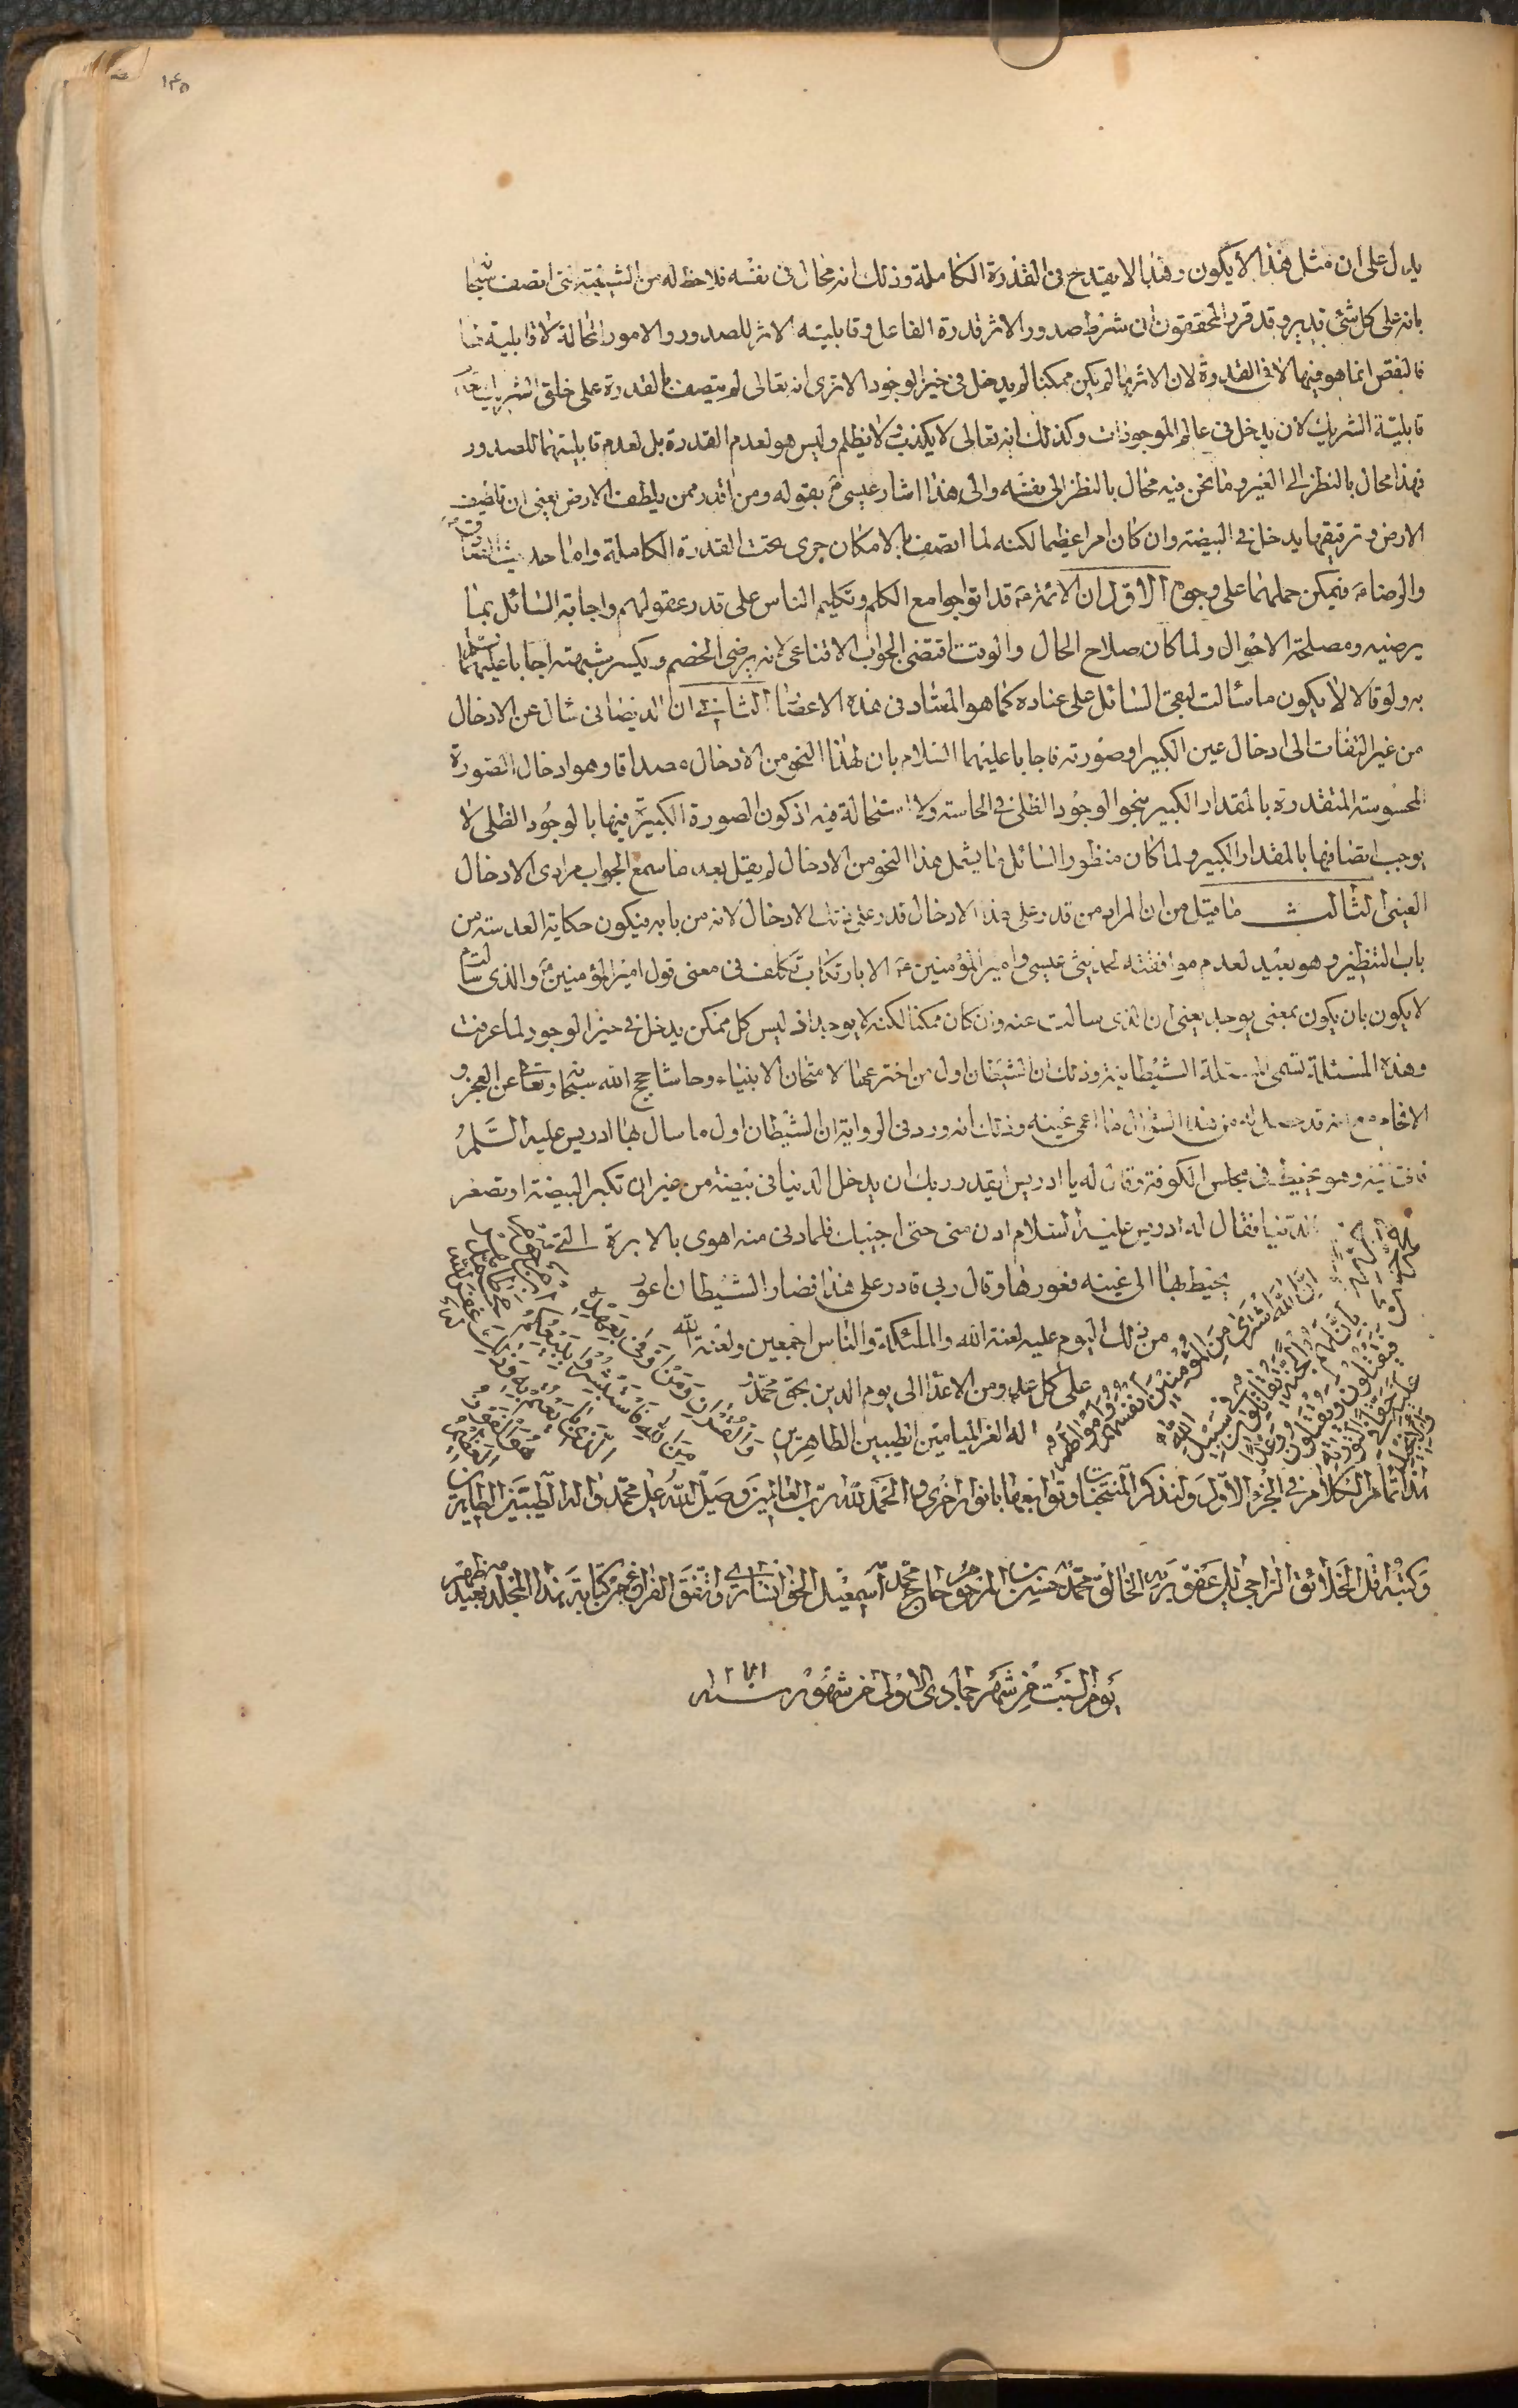 ١٤٥
يدل على ان مثل هذا لا يكون وهذا لا يقدح فى القدرة الكاملة وذلك انه محال فى نفسه فلا حظ له من الشيئية حتى اتصف
بانه على كل شئ قدير وقد قرر المحققون ان شرط صدور الاثر قدرة الفاعل وقابلية الاثر للصدور والامور المحالة لا قابلية لها
فالنقص انما هو فيها لا فى القدرة لان الاثر ما لم يكن ممكنا لم يدخل فى حيز الوجود الا ترى انه تعالى لم يتصف بالقدرة على خلق الشريك
قابلية الشريك لان يدخل فى عالم الموجودات وكذلك انه تعالى لا يكذب ولا يظلم وليس هو لعدم القدرة بل لعدم قابليتهما للصدور
فهذا محال بالنظر الى الغير وما نحن فيه محال بالنظر الى نفسه والى هذا اشار عيسى ع بقوله ومن اقدر ممن يلطف الارض يعنى ان تلطيف
الارض وترقيقها يدخل فى البيضة وان كان امرا عظيما لكنه لما اتصف بالامكان جرى تحت القدرة الكاملة واما حديث
والرضا ع فيمكن حملهما على وجوه الاول ان الائمة ع قد اتوا جوامع الكلم وتكليم الناس على قدر عقولهم واجابة السائل بما
يرضيه ومصلحة الاحوال ولما كان صلاح الحال والوقت اقتضى الجواب الاقناعى لانه يرضى الخصم ويكسر شبهته اجابا عليهما السلم
به ولو قالا لا يكون ما سألت لبقى السائل على عناده كما هو المعتاد فى هذه الاعصار الثانى ان الديصانى سأل عن الادخال
من غير التفات الى ادخال عين الكبير او صورته فاجابا عليهما السلام بان لهذا النحو من الادخال مصداقا وهو ادخال الصورة
المحسوسة المتقدرة بالمقدار الكبير بنحو الوجود الظلى فى الحاسة ولا استحالة فيه اذ كون الصورة الكبيرة فيها بالوجود الظلى لا
يوجب اتصافها بالمقدار الكبير ولما كان منظور السائل ما يشمل هذا النحو من الادخال لم يقل بعد ما سمع الجواب مرادى الادخال
العينى الثالث ما قيل من ان المراد من قدر على هذا الادخال قدر على ذلك الادخال لانه من بابه فيكون حكاية العدسة من
باب التنظير وهو بعيد لعدم موافقته لحديثى عيسى وامير المؤمنين ع الا بارتكاب تكلف فى معنى قول امير المؤمنين ع والذى سالت
لا يكون بان يكون بمعنى يوجد يعنى ان الذى سالت عنه وان كان ممكنا لكنه لا يوجد اذ ليس كل ممكن يدخل فى حيز الوجود لما عرفت
وهذه المسئلة تسمى المسئلة الشيطانية وذلك ان الشيطان اول من اخترعها لامتحان الانبياء وحاشا حجج الله سبحانه وتعالى عن العجز و
الافحام مع انه قد حصل له من هذا السؤال ما اعمى عينه وذلك انه ورد فى الرواية ان الشيطان اول ما سال بها ادريس عليه السلم
فاتى اليه وهو يخيط فى مجلس الكوفة وقال له يا ادريس ايقدر ربك ان يدخل الدنيا فى بيضة من غير ان تكبر البيضة او تصغر
الدنيا فقال له ادريس عليه السلام ادن منى حتى اجيبك فلما دنى منه اهوى بالابرة التى
يخيط بها الى عينه فعورها وقال ربى قادر على هذا فصار الشيطان اعور
من ذلك اليوم عليه لعنة الله والملئكة والناس اجمعين ولعنة الله
على كل عدو من الاعداء الى يوم الدين بحق محمد و
اله الغر الميامين الطيبين الطاهرين
ان الله اشترى من المؤمنين انفسهم واموالهم
بان لهم الجنة يقاتلون فى سبيل الله
فيقتلون ويقتلون وعدا
عليه حقا فى التورية
والانجيل
والقران ومن اوفى بعهده
من الله فاستبشروا ببيعكم
الذى بايعتم به وذلك
هو الفوز
العظيم
هذا تمام الكلام فى الجزء الاول ولنذكر المنتخبات وتوابعها بانوار اخرى والحمد لله رب العالمين وصلى الله على محمد واله الطيبين الطاهرين
وكتبه اقل الخلائق الراجى الى عفو ربه الخالق محمد حسين بن المرحوم حاج محمد اسمعيل الخوانسارى واتفق الفراغ من كتابة هذا المجلد بعيد ظهر
يوم السبت من شهر جمادى الاولى من شهور سنة